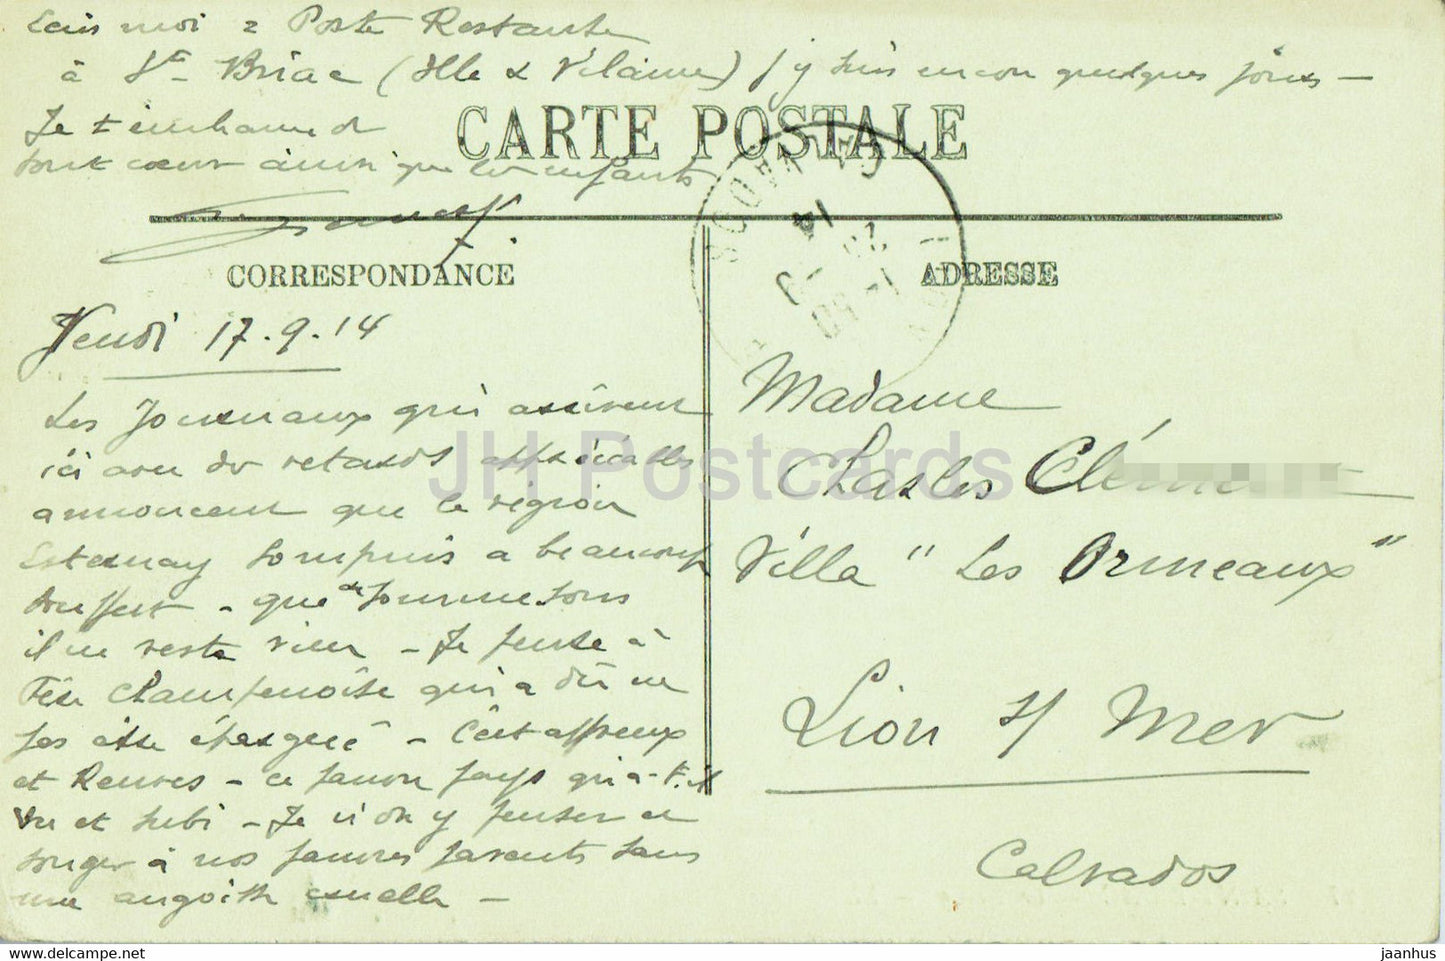 Ecris moi Poste Restante
à St Briac (Ille & Vilaine) j'y suis encore quelques jours —
Je t'embrasse de
tout cœur ainsi que les enfants
CARTE POSTALE
CORRESPONDANCE
ADRESSE
Jeudi 17.9.14
Les Journaux qui arrivent
ici avec du retard
annoncent que la région
Esternay Sompuis a beaucoup
souffert - que de Sommesous
il ne reste rien - Je pense à
Fère Champenoise qui a dû ne
pas être épargné - C'est affreux
et Reuves - ce pauvre pays qui a
vu et subi - Je n'ose y penser et
songer à nos pauvres parents sans
une angoisse cruelle -
Madame
Charles Clém
Villa "Les Ormeaux"
Lion s/ Mer
Calvados
JH Postcards
www.jhpostcards.com
jaanhus